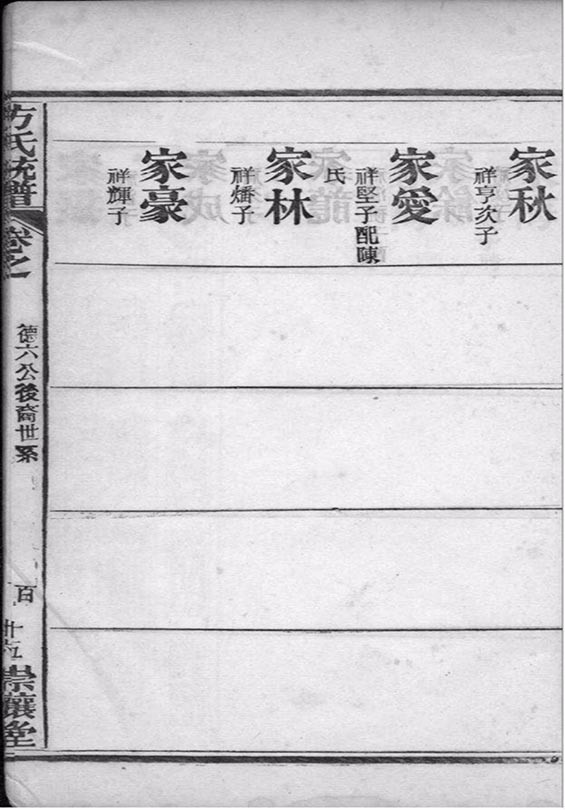 家秋
祥亨次子
家愛
祥堅子配陳
氏
家林
祥燔子
家豪
祥輝子
方氏統譜
卷之一
德六公後裔世系
百
廿六
崇讓堂